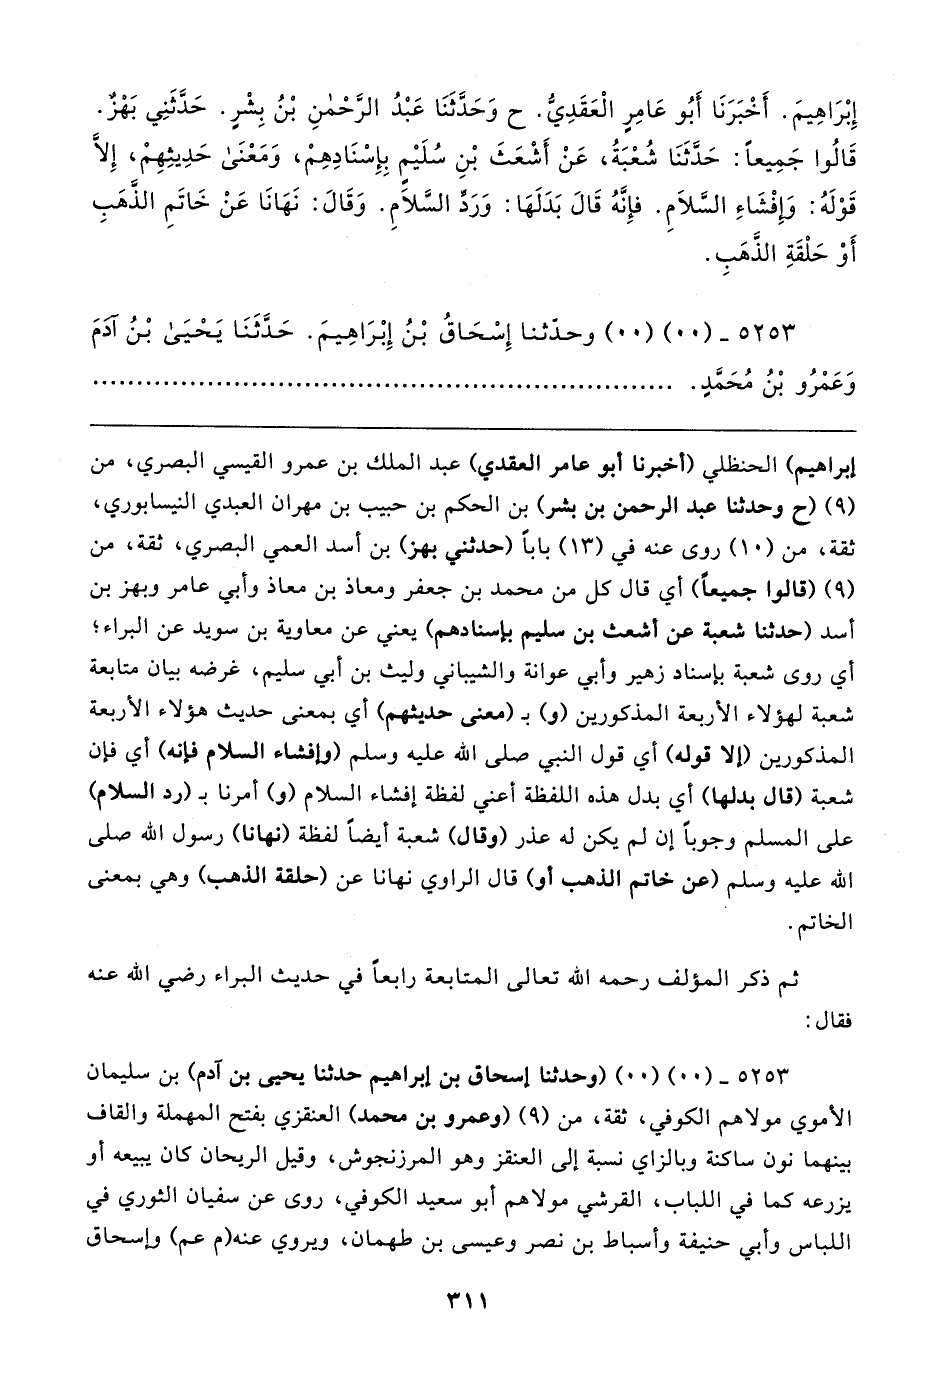 إِبْرَاهِيمَ. أَخْبَرَنَا أَبُو عَامِرٍ الْعَقَدِيُّ. ح وَحَدَّثَنَا عَبْدُ الرَّحْمٰنِ بْنُ بِشْرٍ. حَدَّثَنِي بَهْزٌ.
قَالُوا جَمِيعاً: حَدَّثَنَا شُعْبَةُ، عَنْ أَشْعَثَ بْنِ سُلَيْمٍ بِإِسْنَادِهِمْ، وَمَعْنَىٰ حَدِيثِهِمْ، إِلَّا
قَوْلَهُ: وَإِفْشَاءِ السَّلَامِ. فَإِنَّهُ قَالَ بَدَلَهَا: وَرَدِّ السَّلَامِ. وَقَالَ: نَهَانَا عَنْ خَاتَمِ الذَّهَبِ
أَوْ حَلْقَةِ الذَّهَبِ.
٥٢٥٣ - (٠٠) (٠٠) وحدّثنا إِسْحَاقُ بْنُ إِبْرَاهِيمَ. حَدَّثَنَا يَحْيَىٰ بْنُ آدَمَ
وَعَمْرُو بْنُ مُحَمَّدٍ. ................................................................
إبراهيم) الحنظلي (أخبرنا أبو عامر العقدي) عبد الملك بن عمرو القيسي البصري، من
(٩) (ح وحدثنا عبد الرحمن بن بشر) بن الحكم بن حبيب بن مهران العبدي النيسابوري،
ثقة، من (١٠) روى عنه في (١٣) باباً (حدثني بهز) بن أسد العمي البصري، ثقة، من
(٩) (قالوا جميعاً) أي قال كل من محمد بن جعفر ومعاذ بن معاذ وأبي عامر وبهز بن
أسد (حدثنا شعبة عن أشعث بن سليم بإسنادهم) يعني عن معاوية بن سويد عن البراء؛
أي روى شعبة بإسناد زهير وأبي عوانة والشيباني وليث بن أبي سليم، غرضه بيان متابعة
شعبة لهؤلاء الأربعة المذكورين (و) بـ (معنى حديثهم) أي بمعنى حديث هؤلاء الأربعة
المذكورين (إلا قوله) أي قول النبي صلى الله عليه وسلم (وإفشاء السلام فإنه) أي فإن
شعبة (قال بدلها) أي بدل هذه اللفظة أعني لفظة إفشاء السلام (و) أمرنا بـ (رد السلام)
على المسلم وجوباً إن لم يكن له عذر (وقال) شعبة أيضاً لفظة (نهانا) رسول الله صلى
الله عليه وسلم (عن خاتم الذهب أو) قال الراوي نهانا عن (حلقة الذهب) وهي بمعنى
الخاتم.
ثم ذكر المؤلف رحمه الله تعالى المتابعة رابعاً في حديث البراء رضي الله عنه
فقال:
٥٢٥٣ - (٠٠) (٠٠) (وحدثنا إسحاق بن إبراهيم حدثنا يحيى بن آدم) بن سليمان
الأموي مولاهم الكوفي، ثقة، من (٩) (وعمرو بن محمد) العنقزي بفتح المهملة والقاف
بينهما نون ساكنة وبالزاي نسبة إلى العنقز وهو المرزنجوش، وقيل الريحان كان يبيعه أو
يزرعه كما في اللباب، القرشي مولاهم أبو سعيد الكوفي، روى عن سفيان الثوري في
اللباس وأبي حنيفة وأسباط بن نصر وعيسى بن طهمان، ويروي عنه(م عم) وإسحاق
٣١١